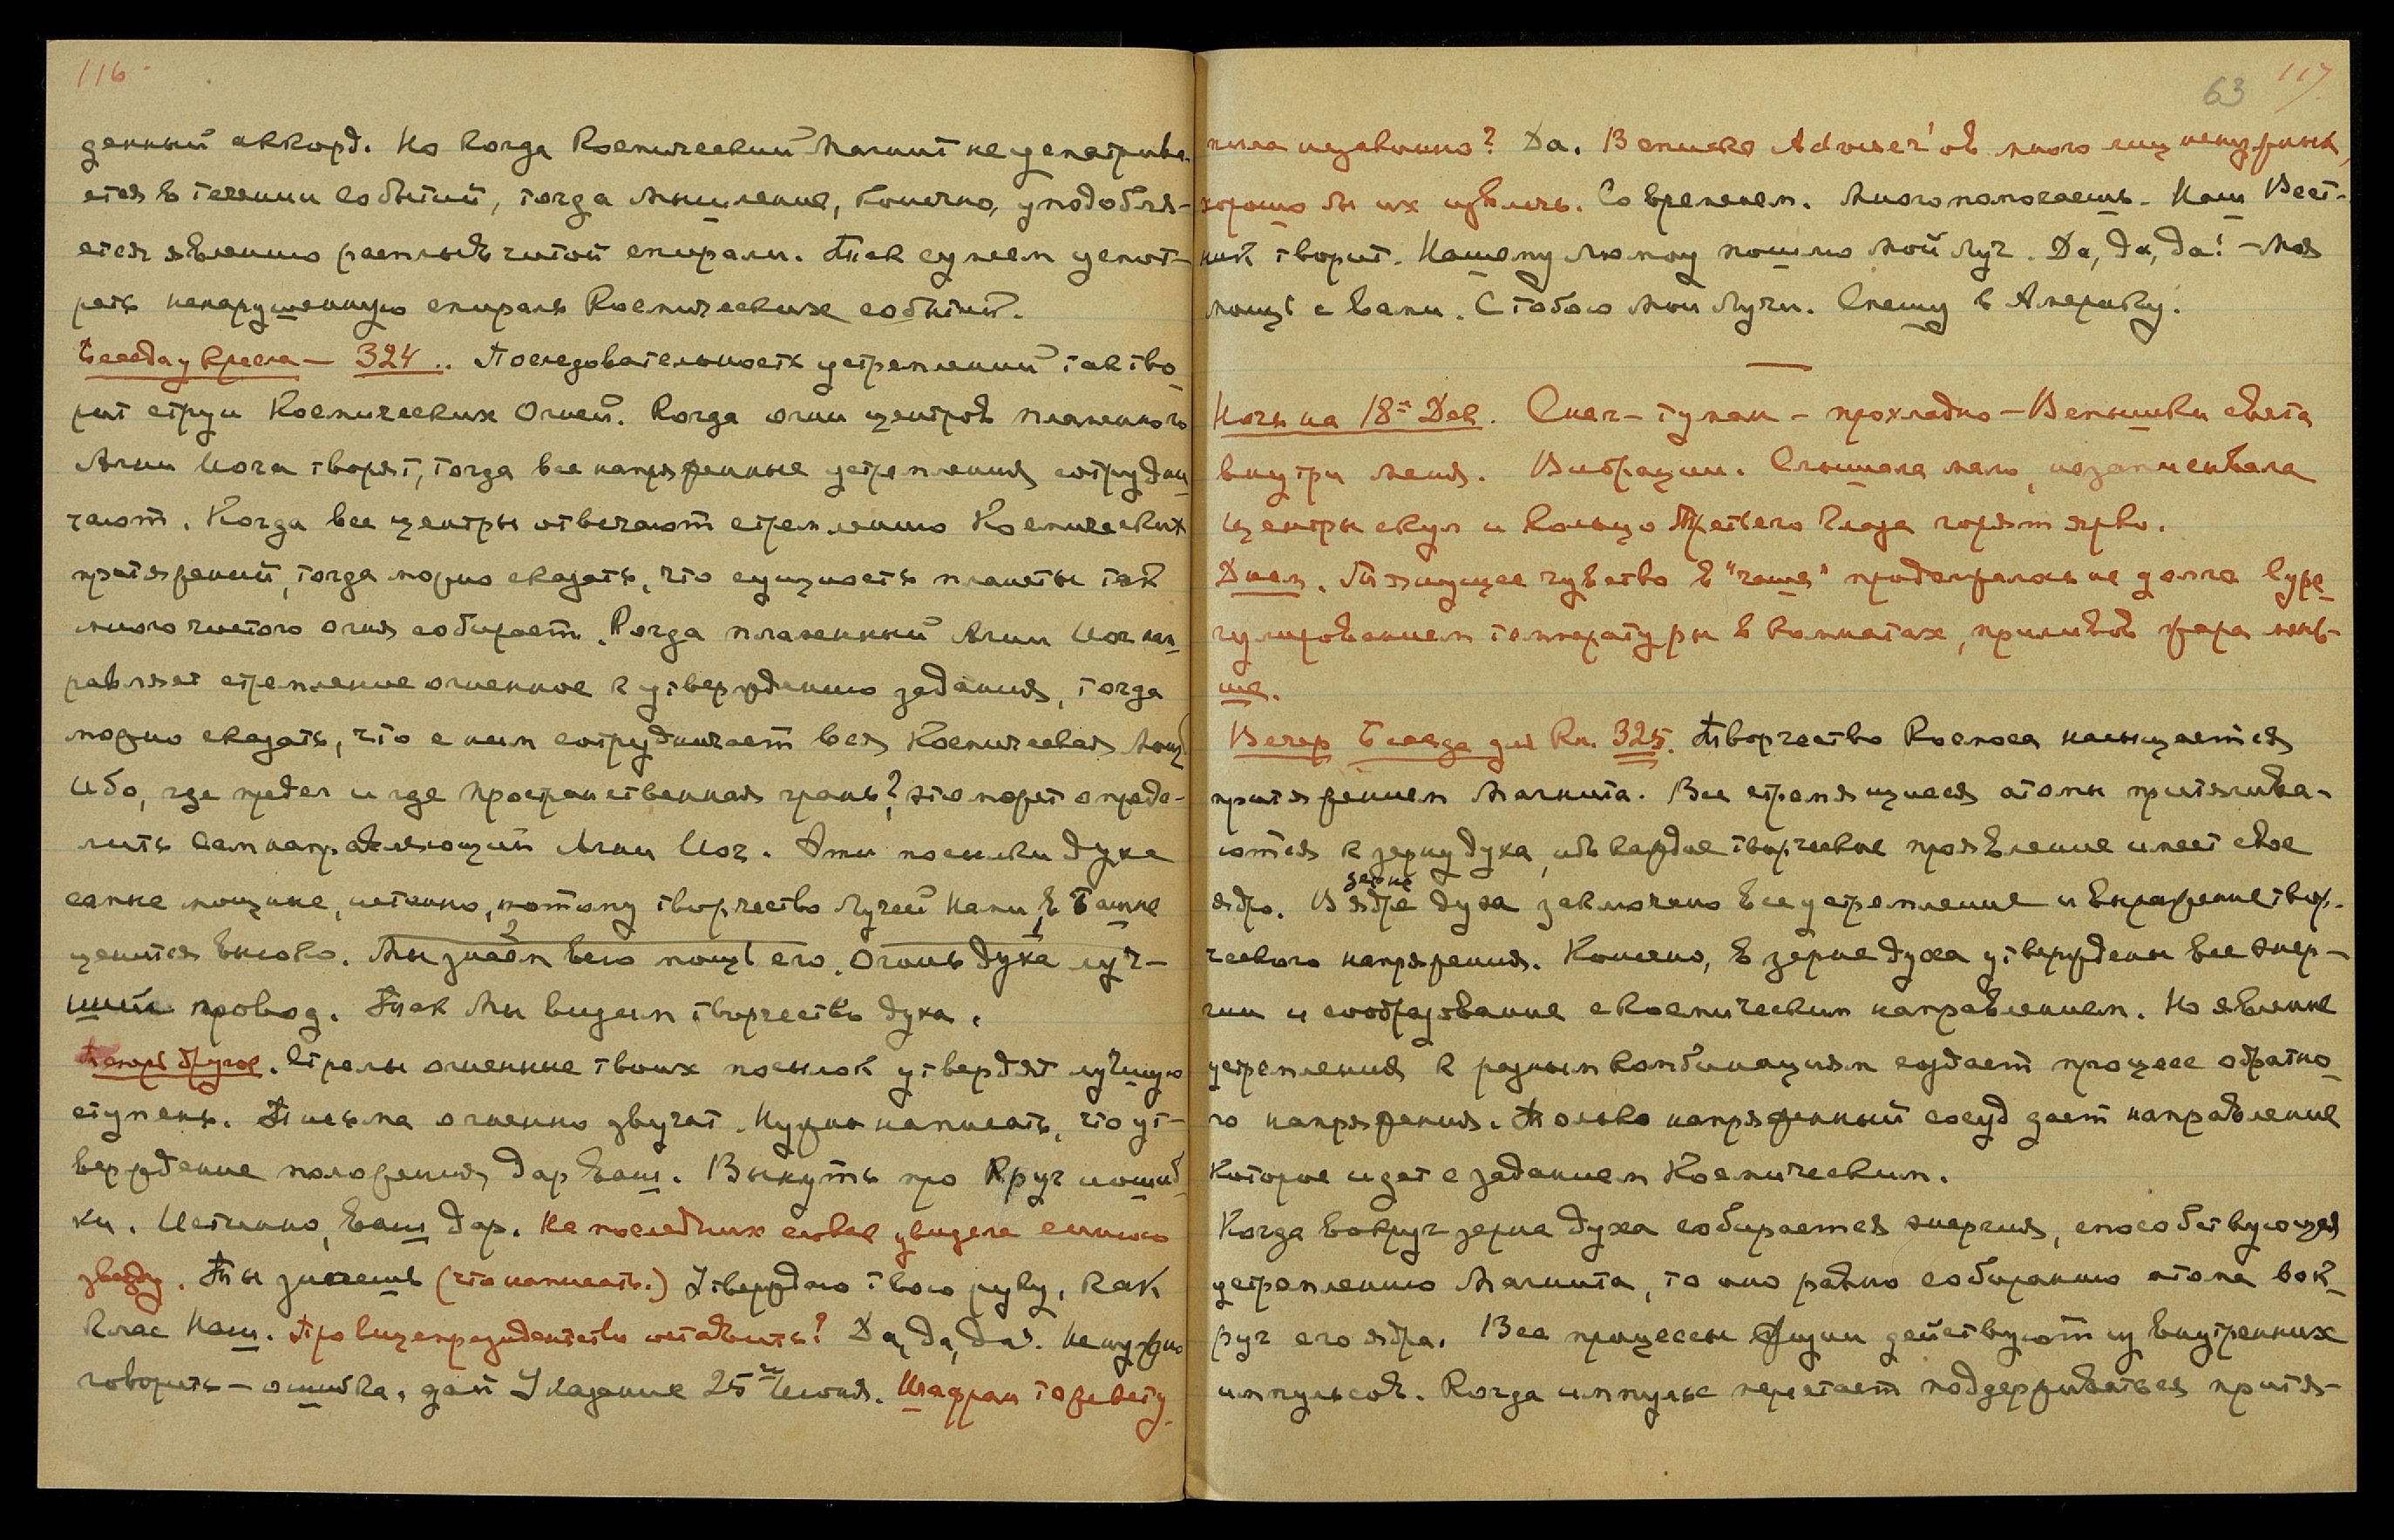 116
денный аккорд. Но когда Космический Магнит не усматрива-
ется в течении событий, тогда мышление, конечно, уподобля-
ется явлению расплывчатой спирали. Так сумеем усмот-
реть ненарушенную спираль Космических событий.
Беседа у кресла — 324.. Последовательность устремлений так тво-
рит струи Космических Огней. Когда огни центров пламенного
Агни Йога творят, тогда все напряженные устремления сотрудни-
чают. Когда все центры отвечают стремлению Космических
притяжений, тогда можно сказать, что сущность планеты так
много чистого огня собирает. Когда пламенный Агни Йог нап-
равляет стремление огненное к утверждению задания, тогда
можно сказать, что с ним сотрудничает вся Космическая Мощь
Ибо, где предел и где пространственная грань? это может опреде-
лить сам направляющий Агни Йог. Эти посылки духа
самые мощные, истинно, потому творчество Лучей Нами в Башне
ценится высоко. Мы знаем всю мощь его. Огонь духа луч-
ший провод. Так Мы видим творчество духа.
Теперь другое. Стрелы огненные твоих посылок утвердят лучшую
ступень. Письма огненно звучат. Нужно написать, что ут-
верждение положения дар ваш. Вынуть про Круг и ошиб-
ки. Истинно, ваш дар. На последних словах увидела синюю
звезду. Ты знаешь (что написать.) Утверждаю твою руку, как
глас Наш. Про вицепрезидентство оставить? Да, да, да. Не нужно
говорить — ошибка, дай Указание 25го Июня. Шафран тоже
63 117.
Да. В списке Adviser'ов много лиц ненужных,
хорошо бы их извлечь. Со временем. Много помогаешь. Наш Вест-
ник творит. Нашему Люмоу пошлю Мой Луч. Да, да, да! — Моя
мощь с вами. С тобою Мои Лучи. Спешу в Америку.
Ночь на 18ое Дек. Снег — туман — прохладно — Вспышки света
внутри меня. Вибрации. Слышала мало, не записывала
Центры скул и кольцо Третьего Глаза горят ярко.
Днем. Тянущее чувство в "чаше" продолжалось не долго С уре-
гулированием температуры в комнатах, приливов жара мень-
ше.
Вечер Беседа для Кн. 325. Творчество Космоса насыщается
притяжением Магнита. Все стремящиеся атомы притягива-
ются к зерну духа, ибо каждое творческое проявление имеет свое
ядро. В ядре зерне духа заключено все устремление и выражение твор-
ческого напряжения. Конечно, в зерне духа утверждены все энер-
гии и сообразование с космическим направлением. Но явление
устремления к разным комбинациям создает процесс обратно-
го напряжения. Только напряженный сосуд дает направление
которое идет с заданием Космическим.
Когда вокруг зерна духа собирается энергия, способствующая
устремлению Магнита, то оно равно собиранию атома вок-
руг его ядра. Все процессы Жизни действуют из внутренних
импульсов. Когда импульс перестает поддерживаться притя-